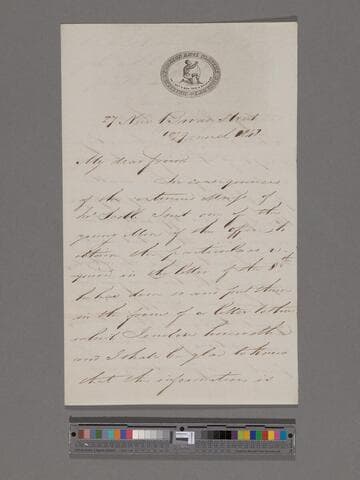 27 New Broad Street
My dear friend
In consequence
of the continued illness of
I sent one of the
young Men of the office to
obtain the particulars re-
quired in the letter of the 8th
he has done so and put them
in the form of a letter to thee
which I enclose herewith
and I shall be glad to know
that the information is